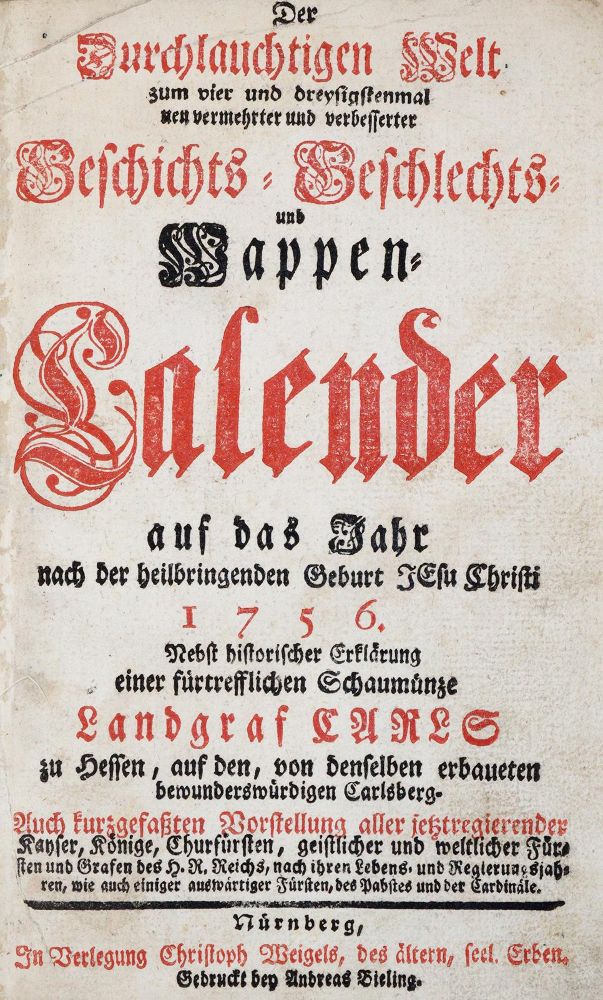 Der
Durchlauchtigen Welt
zum vier und dreysigstenmal
neu vermehrter und verbesserter
Geschichts- Geschlechts-
und
Wappen-
Calender
auf das Jahr
nach der heilbringenden Geburt JEsu Christi
1756.
Nebst historischer Erklärung
einer fürtrefflichen Schaumünze
Landgraf CARLS
zu Hessen, auf den, von denselben erbaueten
bewunderswürdigen Carlsberg.
Auch kurzgefaßten Vorstellung aller jetztregierender
Kayser, Könige, Churfürsten, geistlicher und weltlicher Für-
sten und Grafen des H. R. Reichs, nach ihren Lebens- und Regierungsjah-
ren, wie auch einiger auswärtiger Fürsten, des Pabstes und der Cardinäle.
Nürnberg,
In Verlegung Christoph Weigels, des ältern, seel. Erben.
Gedruckt bey Andreas Bieling.